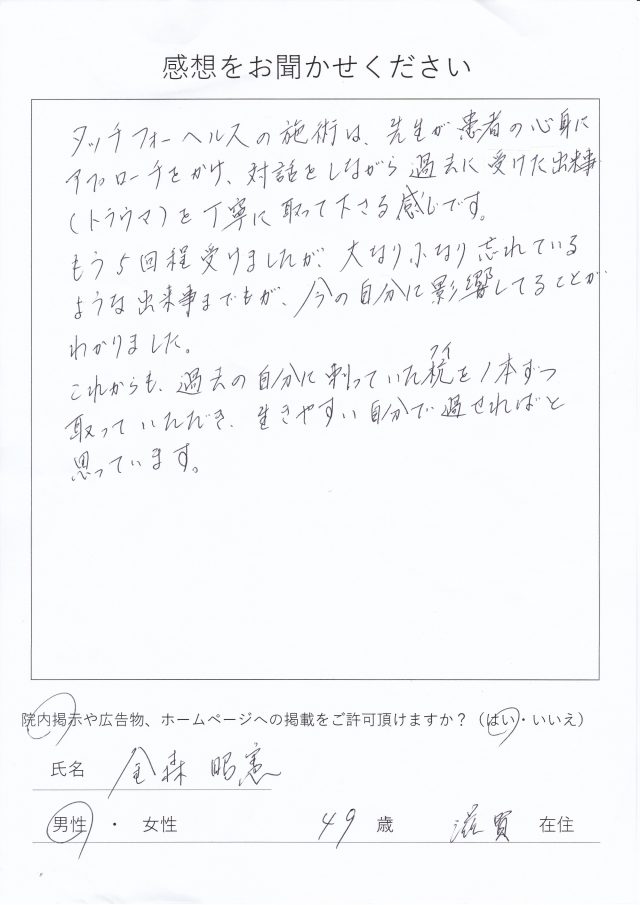 感想をお聞かせください
タッチフォーヘルスの施術は、先生が患者の心身に
アプローチをかけ、対話をしながら過去に受けた出来事
(トラウマ)を丁寧に取って下さる感じです。
もう5回程受けましたが、大なり小なり忘れている
ような出来事までもが、今の自分に影響してることが
わかりました。
クイ
これからも、過去の自分に刺っていた杭を1本ずつ
取っていただき、生きやすい自分で過せればと
思っています。
院内掲示や広告物、ホームページへの掲載をご許可頂けますか?(はい・いいえ)
氏名 金森 昭憲
男性 ・ 女性 49 歳 滋賀 在住